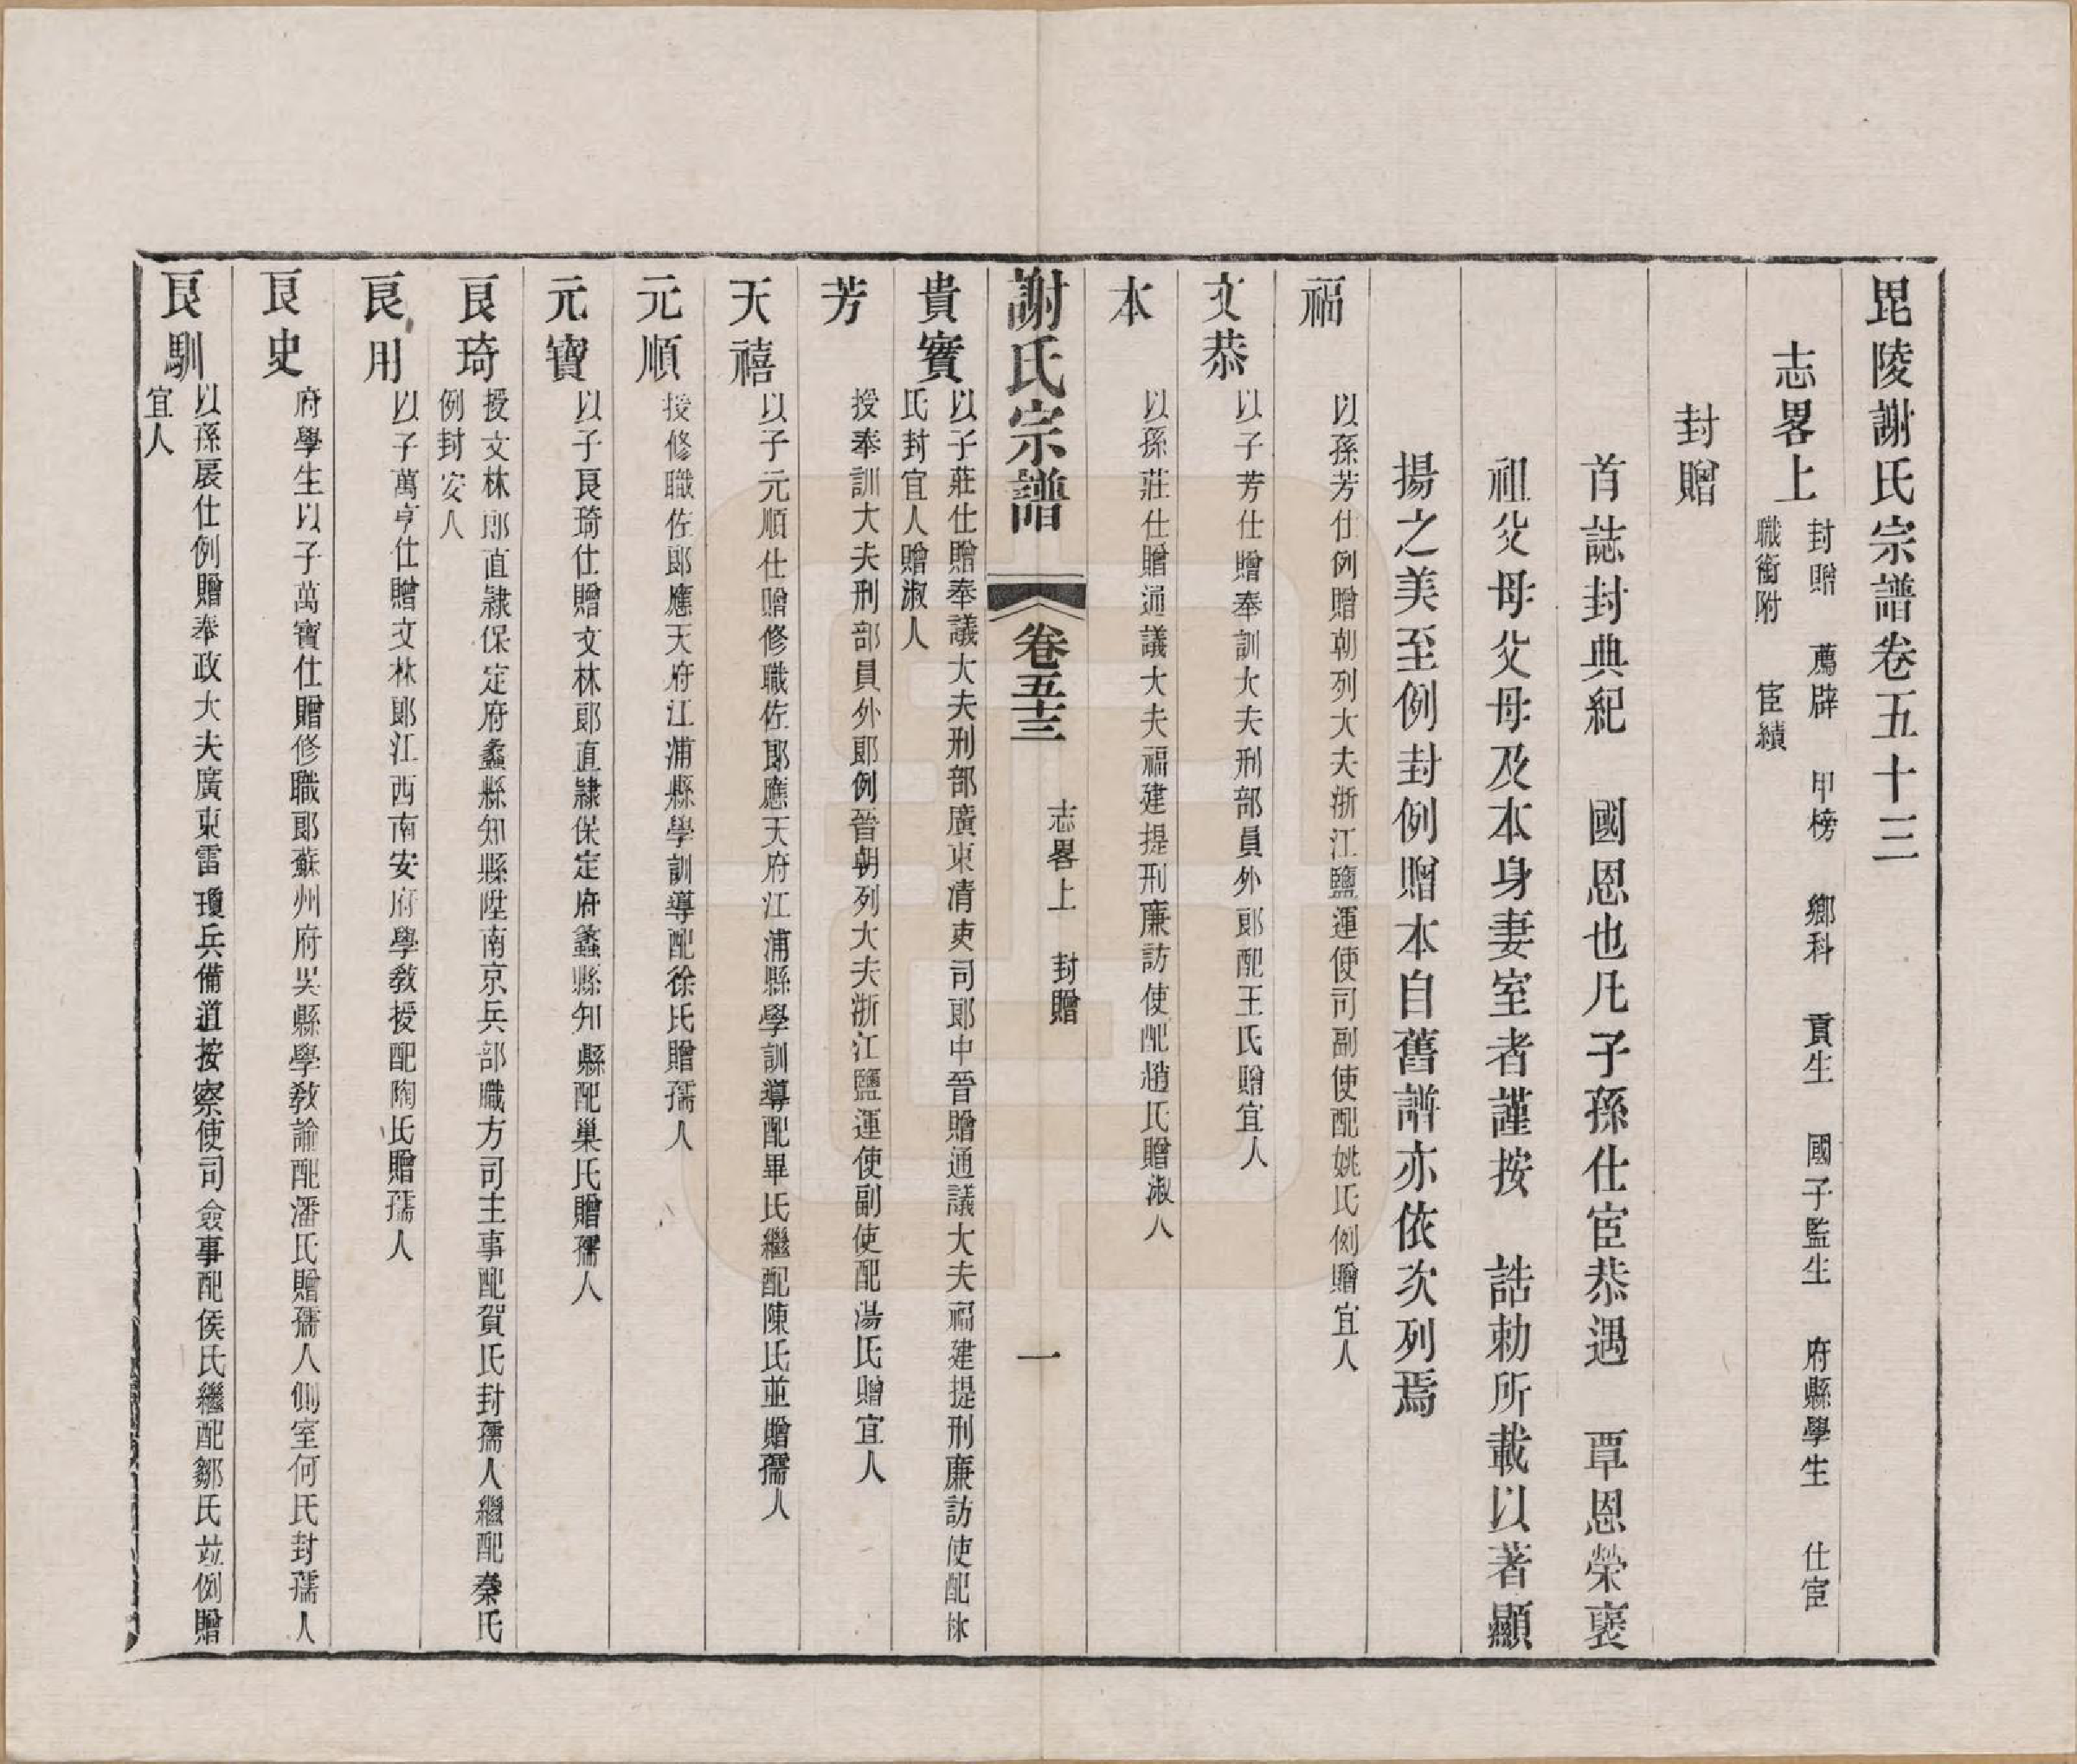 毘陵謝氏宗譜卷五十三
志畧上
封贈 薦辟 甲榜 鄉科 貢生 國子監生 府縣學生 仕宦
職銜附 宦績
封贈
首誌封典紀 國恩也凡子孫仕宦恭遇 覃恩榮褒
祖父母父母及本身妻室者謹按 誥勅所載以著顯
揚之美至例封例贈本自舊譜亦依次列焉
福 以孫芳仕例贈朝列大夫浙江鹽運使司副使配姚氏例贈宜人
文恭 以子芳仕贈奉訓大夫刑部員外郎配王氏贈宜人
本 以孫莊仕贈通議大夫福建提刑廉訪使配趙氏贈淑人
謝氏宗譜 卷五十三 志畧上 封贈 一
貴實 以子莊仕贈奉議大夫刑部廣東清吏司郎中晉贈通議大夫福建提刑廉訪使配林
氏封宜人贈淑人
芳 授奉訓大夫刑部員外郎例晉朝列大夫浙江鹽運使副使配湯氏贈宜人
天禧 以子元順仕贈修職佐郎應天府江浦縣學訓導配畢氏繼配陳氏並贈孺人
元順 授修職佐郎應天府江浦縣學訓導配徐氏贈孺人
元寶 以子良琦仕贈文林郎直隸保定府蠡縣知縣配巢氏贈孺人
良琦 授文林郎直隸保定府蠡縣知縣陞南京兵部職方司主事配賀氏封孺人繼配秦氏
例封安人
良用 以子萬亨仕贈文林郎江西南安府學教授配陶氏贈孺人
良史 府學生以子萬寶仕贈修職郎蘇州府吳縣學教諭配潘氏贈孺人側室何氏封孺人
良馴 以孫展仕例贈奉政大夫廣東雷瓊兵備道按察使司僉事配侯氏繼配鄒氏竝例贈
宜人